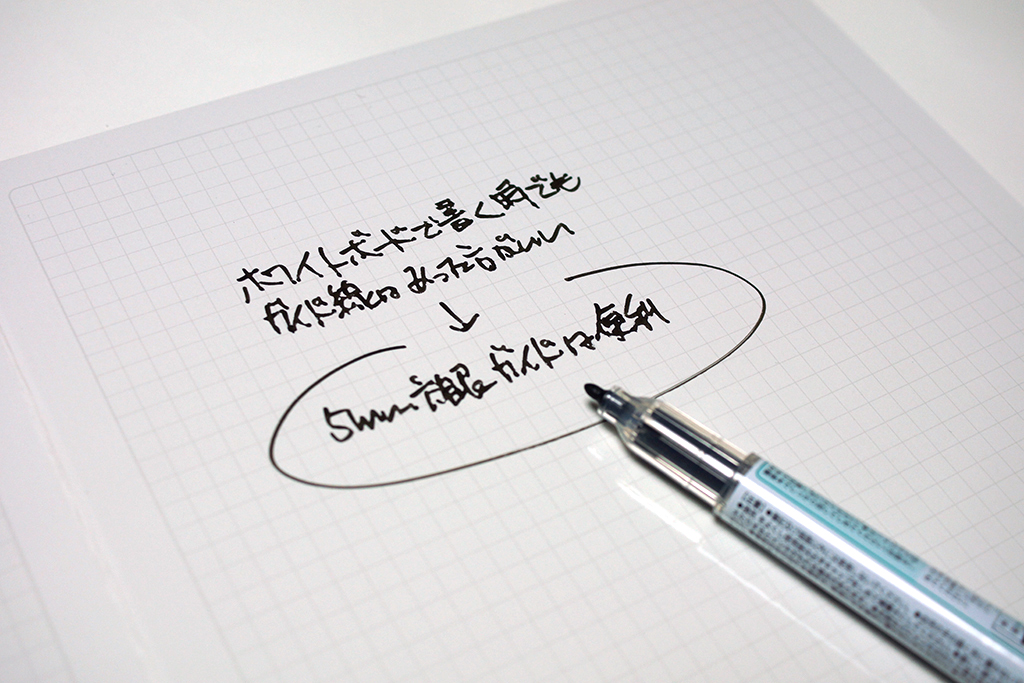 ホワイトボードで書く時でも
ガイド線はあった方がいい
↓
5mm方眼ガイドは便利